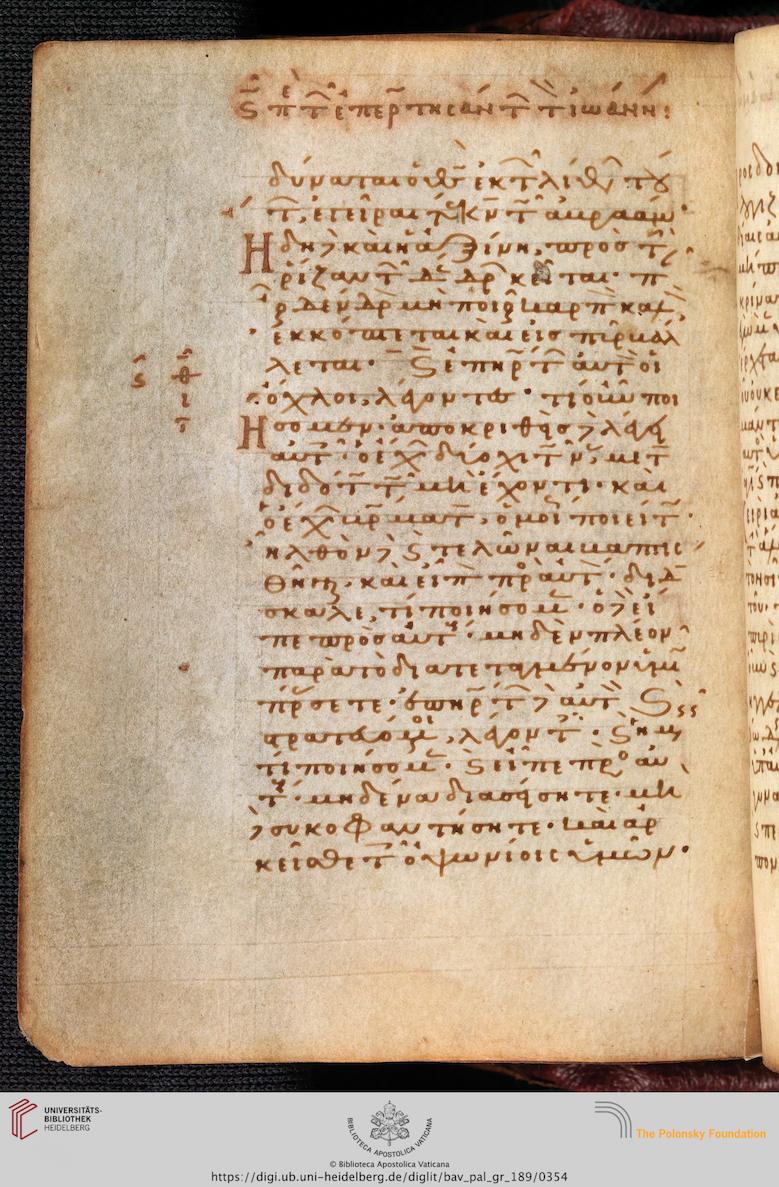 Ϛ π τ ἐπερ̃τησάν τ̃ τ̃ ἰωάνν:
δύναται ὁ θς ἐκ τ̑ λίθ τού
τ̃, ἐγεῖραι τέκν τ̑ ἀβραάμ·
Ηδη δὲ καὶ ἡ ἀξίνη, πρὸς τ̀
ρίζαν τ̑ δένδρ κεῖται· π
δένδρ μὴ ποιοῦ καρπ καλ
ἐκκόπτεται καὶ εἰς πῦρ βάλ
λεται· Ϛ ἐπηρ̃ τ̃ αὐτ̃ οἱ
ὄχλοι, λέγοντες· τί οὖν ποι
Ησομεν· ἀποκριθεὶς δὲ λέγει
αὐτ̃· ὁ ἔχ δύο χιτῶν, μετ̃
δότ̃ τ̃ μὴ ἔχοντι· καὶ
ὁ ἔχ βρ̃ματ̃, ὁμοί ποιείτ̃·
ἦλθον δὲ Ϛ τελῶναι βαπτις
θῆναι· καὶ εἶπ πρ αὐτ· διδ
σκαλε, τί ποιήσομ̃· ὁ δὲ εἶ
πε πρὸς αὐτ· μηδὲν πλέον
παρὰ τὸ διατεταγμένον ὑμ̃
πρ̃σετε· ἐπηρ̃ τ̃ δὲ αὐτ̃ Ϛ
στρατευόμ, λέγοντ̃· Ϛ ἡμ
τί ποιήσομ̃· Ϛ εἶπε πρ αὐ
τ· μηδένα διασείσητε· μη
δὲ συκοφαντήσητε· καὶ ἀρ
κεῖσθε τ̃ ὀψωνίοις ὑμῶν·
UNIVERSITÄTS-
BIBLIOTHEK
HEIDELBERG
BIBLIOTECA APOSTOLICA VATICANA
The Polonsky Foundation
© Biblioteca Apostolica Vaticana
https://digi.ub.uni-heidelberg.de/diglit/bav_pal_gr_189/0354